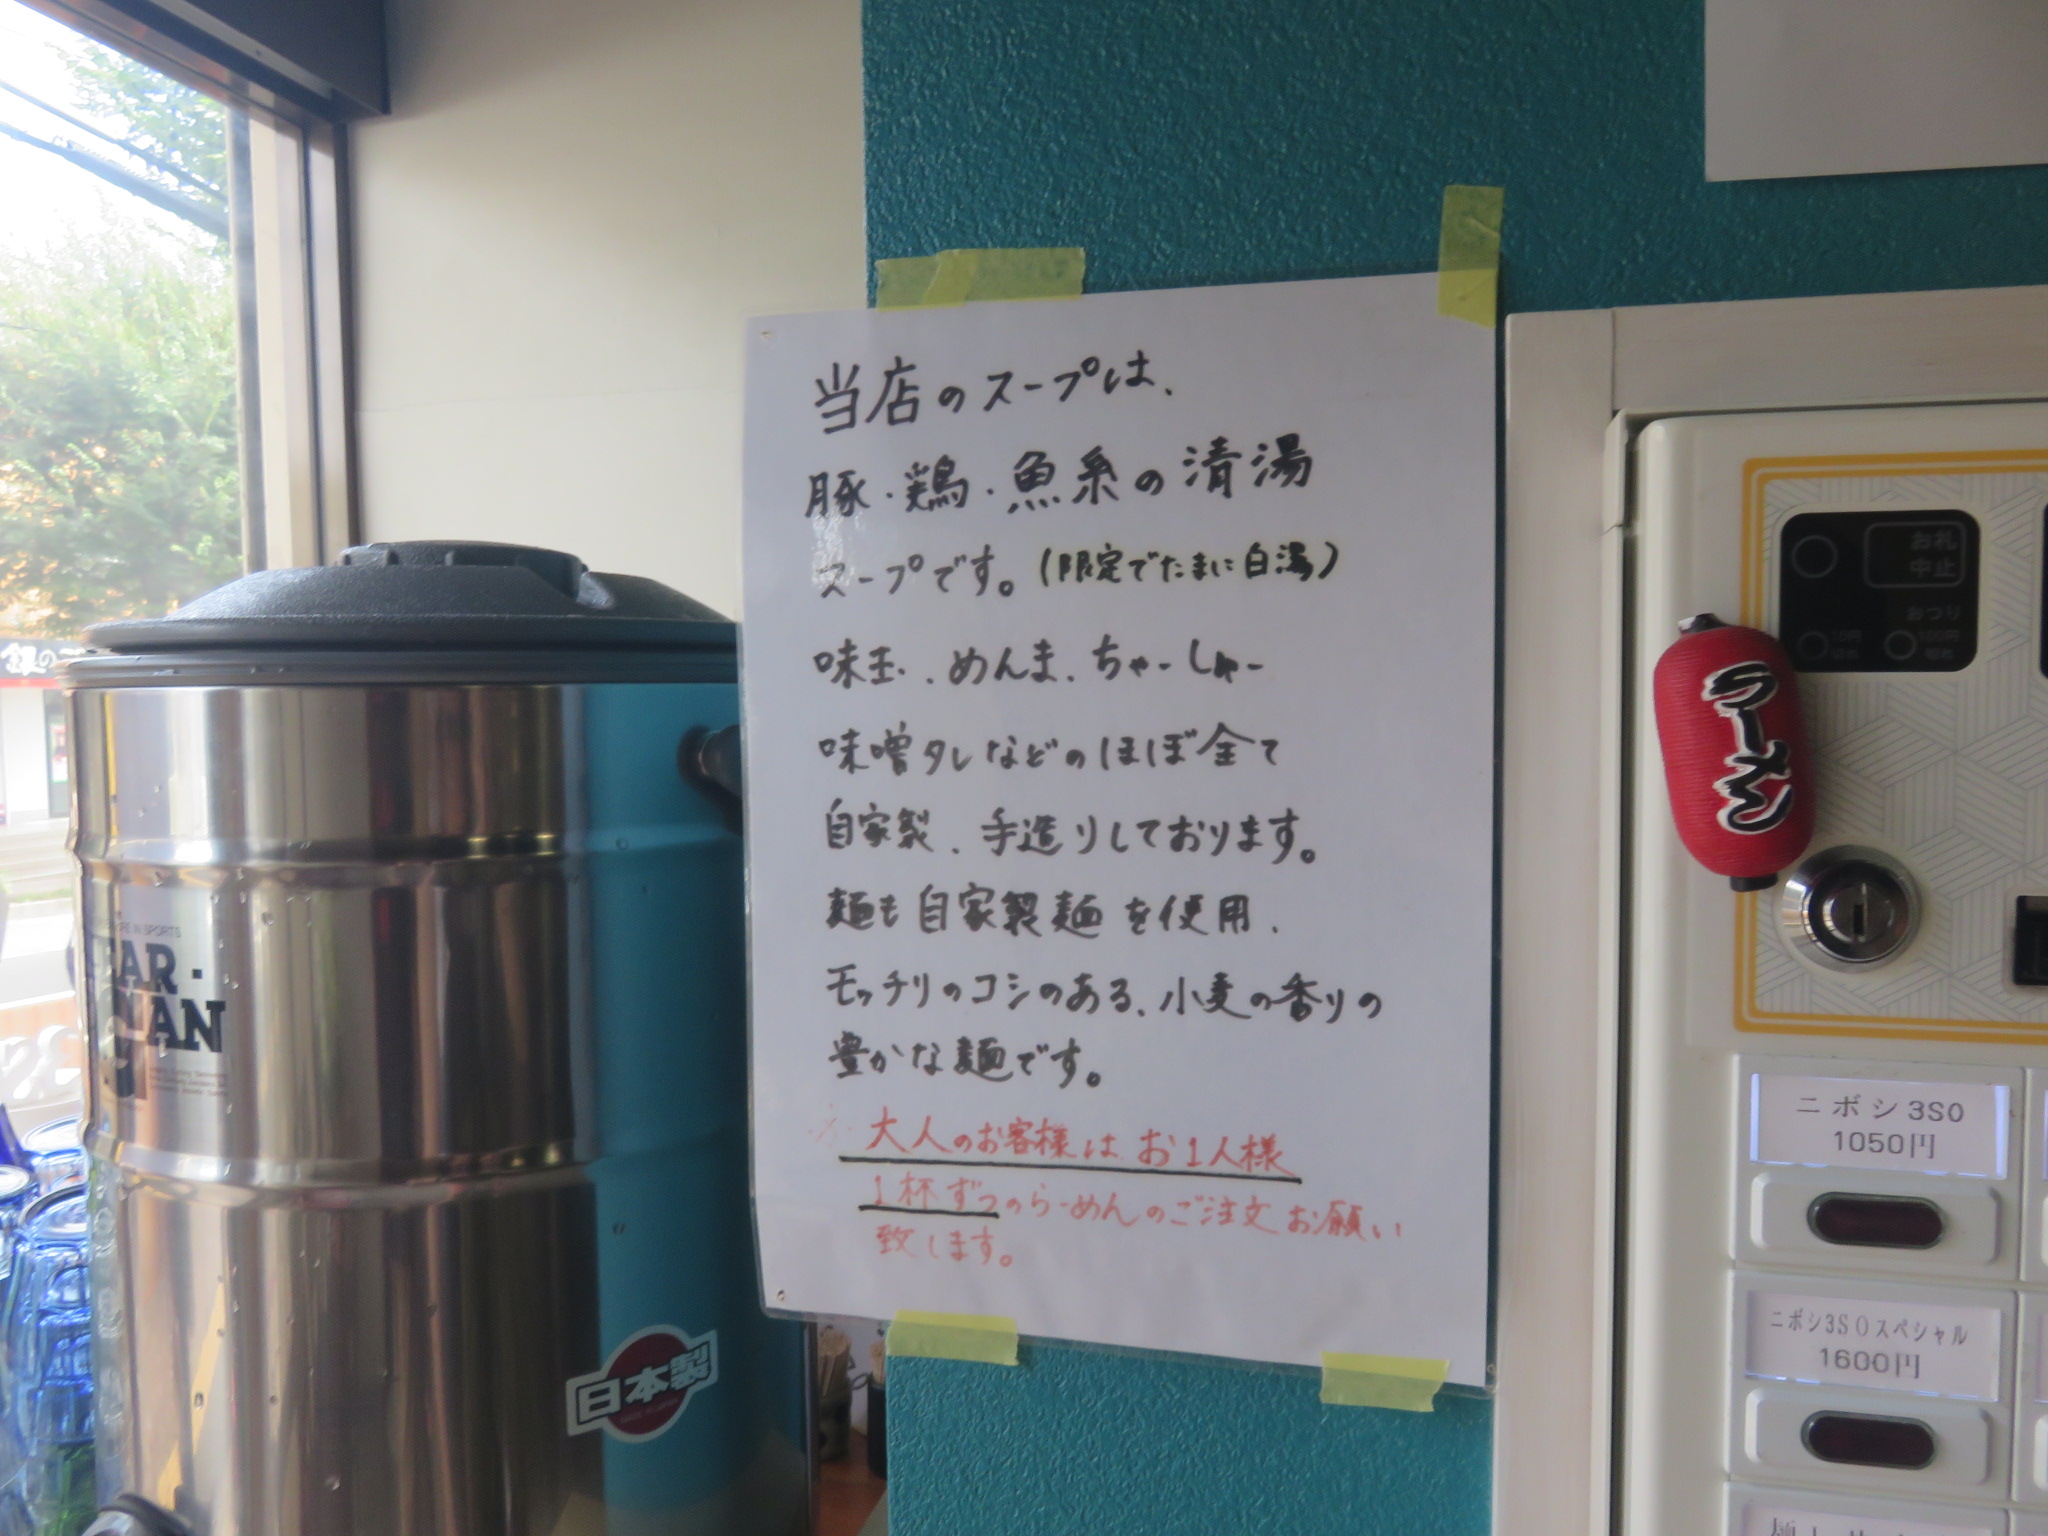 当店のスープは、
豚・鶏・魚系の清湯
スープです。(限定でたまに白湯)
味玉、めんま、ちゃーしゅー
味噌タレなどのほぼ全て
自家製、手造りしております。
麺も自家製麺を使用、
モッチリのコシのある、小麦の香りの
豊かな麺です。
※大人のお客様はお1人様
1杯ずつのらーめんのご注文お願い
致します。
お札
中止
おつり
ラーメン
ニボシ3SO
1050円
ニボシ3SOスペシャル
1600円
日本製
銀の